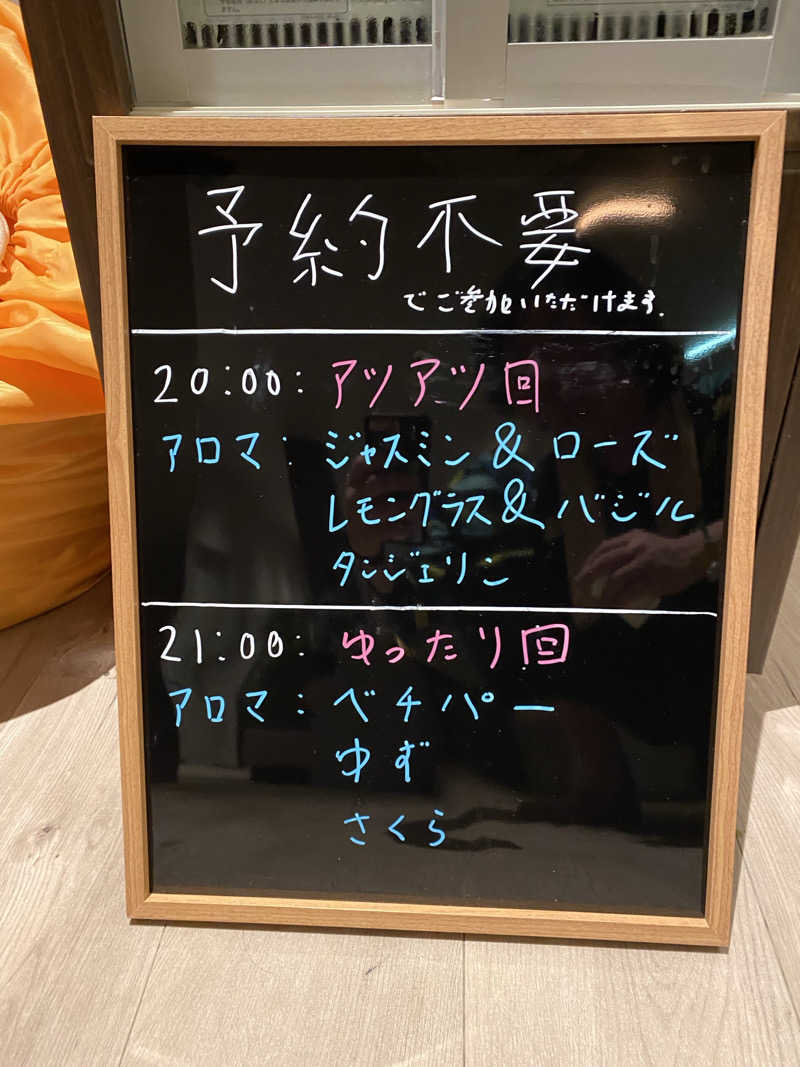 予約不要
でご参加いただけます.
20:00: アツアツ回
アロマ: ジャスミン & ローズ
レモングラス & バジル
タンジェリン
21:00: ゆったり回
アロマ: ベチパー
ゆず
さくら